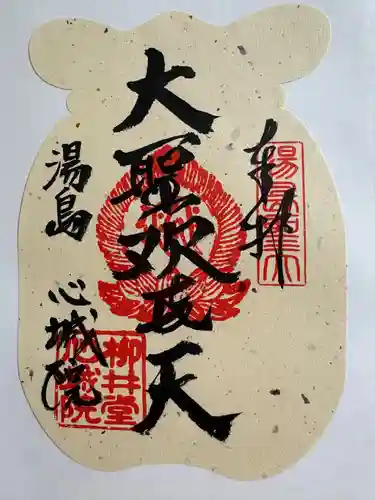 奉拝
大聖歓喜天
湯島
心城院
湯島聖天
柳井堂
心城院